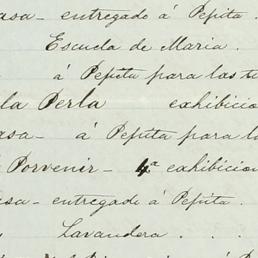 asa - entregado á Pepita.
Escuela de Maria.
á Pepita para las
la Perla exhibicion
asa - á Pepita para l
Porvenir - 4.ª exhibicion
sa - entregado á Pepita.
Lavandera . . .